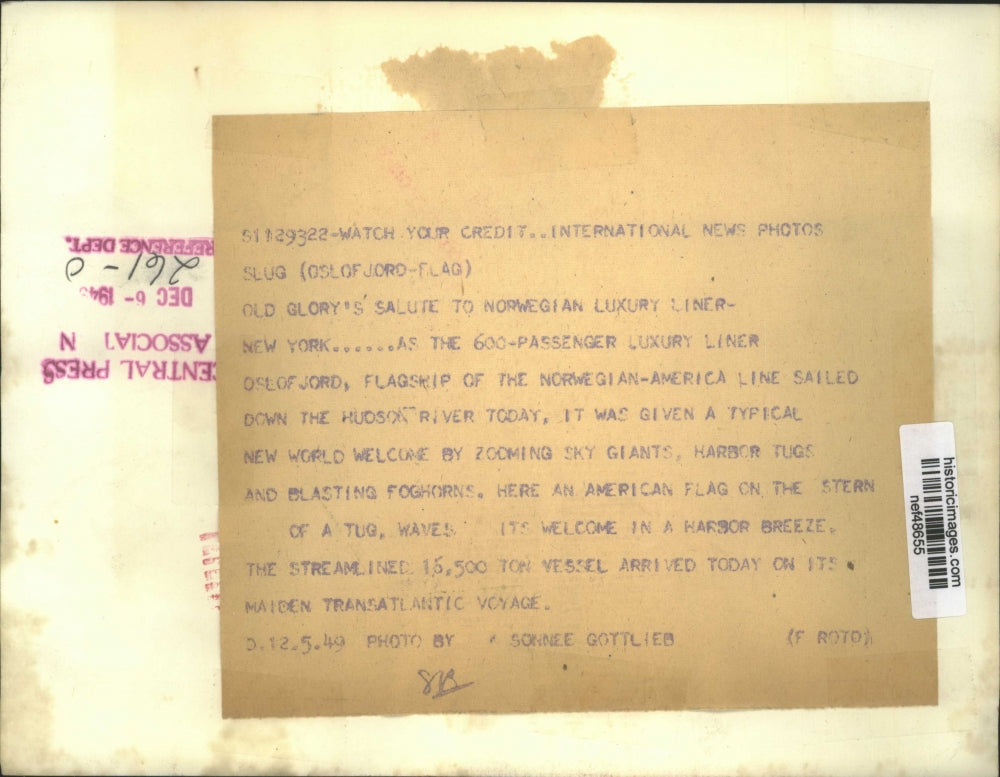 S1129322-WATCH YOUR CREDIT..INTERNATIONAL NEWS PHOTOS
SLUG (OSLOFJORD-FLAG)
OLD GLORY'S SALUTE TO NORWEGIAN LUXURY LINER-
NEW YORK......AS THE 600-PASSENGER LUXURY LINER
OSLOFJORD, FLAGSHIP OF THE NORWEGIAN-AMERICA LINE SAILED
DOWN THE HUDSON RIVER TODAY, IT WAS GIVEN A TYPICAL
NEW WORLD WELCOME BY ZOOMING SKY GIANTS, HARBOR TUGS
AND BLASTING FOGHORNS. HERE AN AMERICAN FLAG ON THE STERN
OF A TUG, WAVES ITS WELCOME IN A HARBOR BREEZE.
THE STREAMLINED 16,500 TON VESSEL ARRIVED TODAY ON ITS
MAIDEN TRANSATLANTIC VOYAGE.
D.12.5.49 PHOTO BY SONNEE GOTTLIEB (F ROTO)
REFERENCE DEPT.
261-
DEC 6- 194
CENTRAL PRESS
ASSOCIAT N
historicimages.com
nef48655